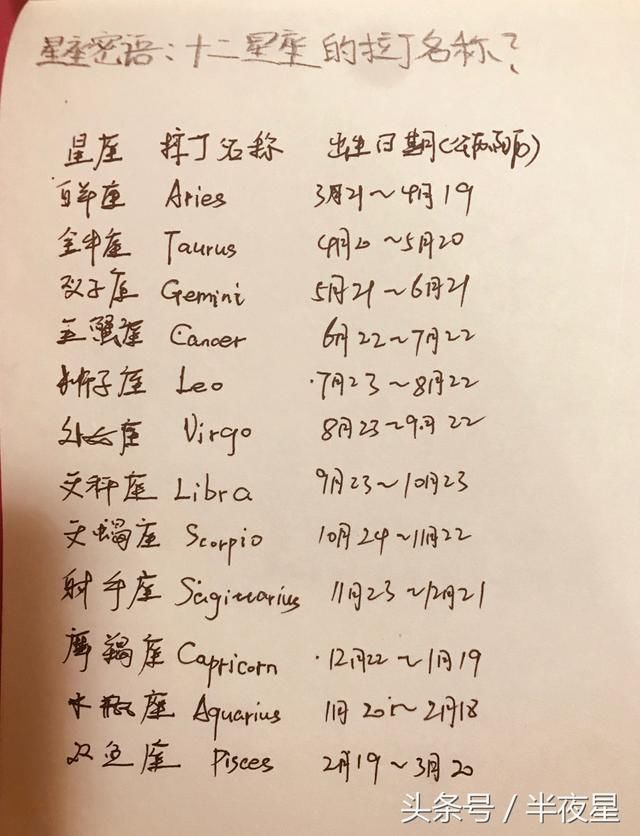 星座密语:十二星座的拉丁名称?
星座 拉丁名称 出生日期(公历
白羊座 Aries 3月21~4月19
金牛座 Taurus 4月20~5月20
双子座 Gemini 5月21~6月21
巨蟹座 Cancer 6月22~7月22
狮子座 Leo 7月23~8月22
处女座 Virgo 8月23~9月22
天秤座 Libra 9月23~10月23
天蝎座 Scorpio 10月24~11月22
射手座 Sagittarius 11月23~12月21
摩羯座 Capricorn 12月22~1月19
水瓶座 Aquarius 1月20~2月18
双鱼座 Pisces 2月19~3月20
头条号 / 半夜星